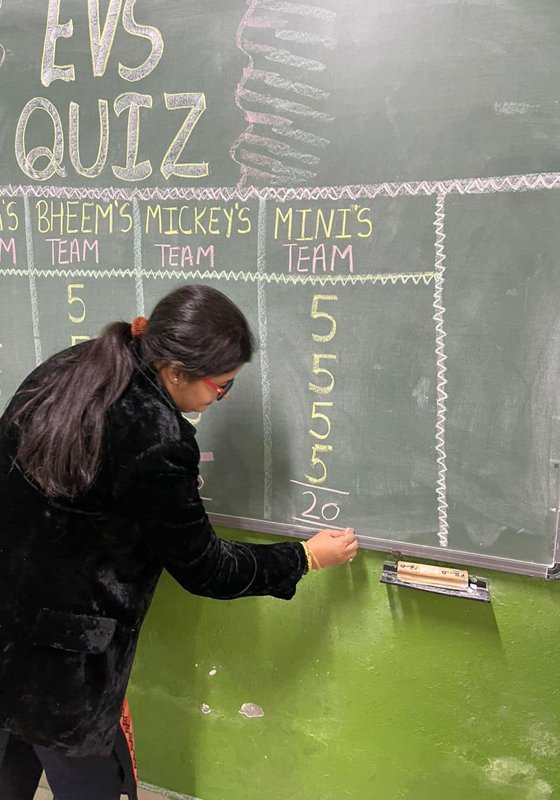 EVS
QUIZ
BHEEM'S MICKEY'S MINI'S
TEAM TEAM TEAM
5 5
5
5
5
20